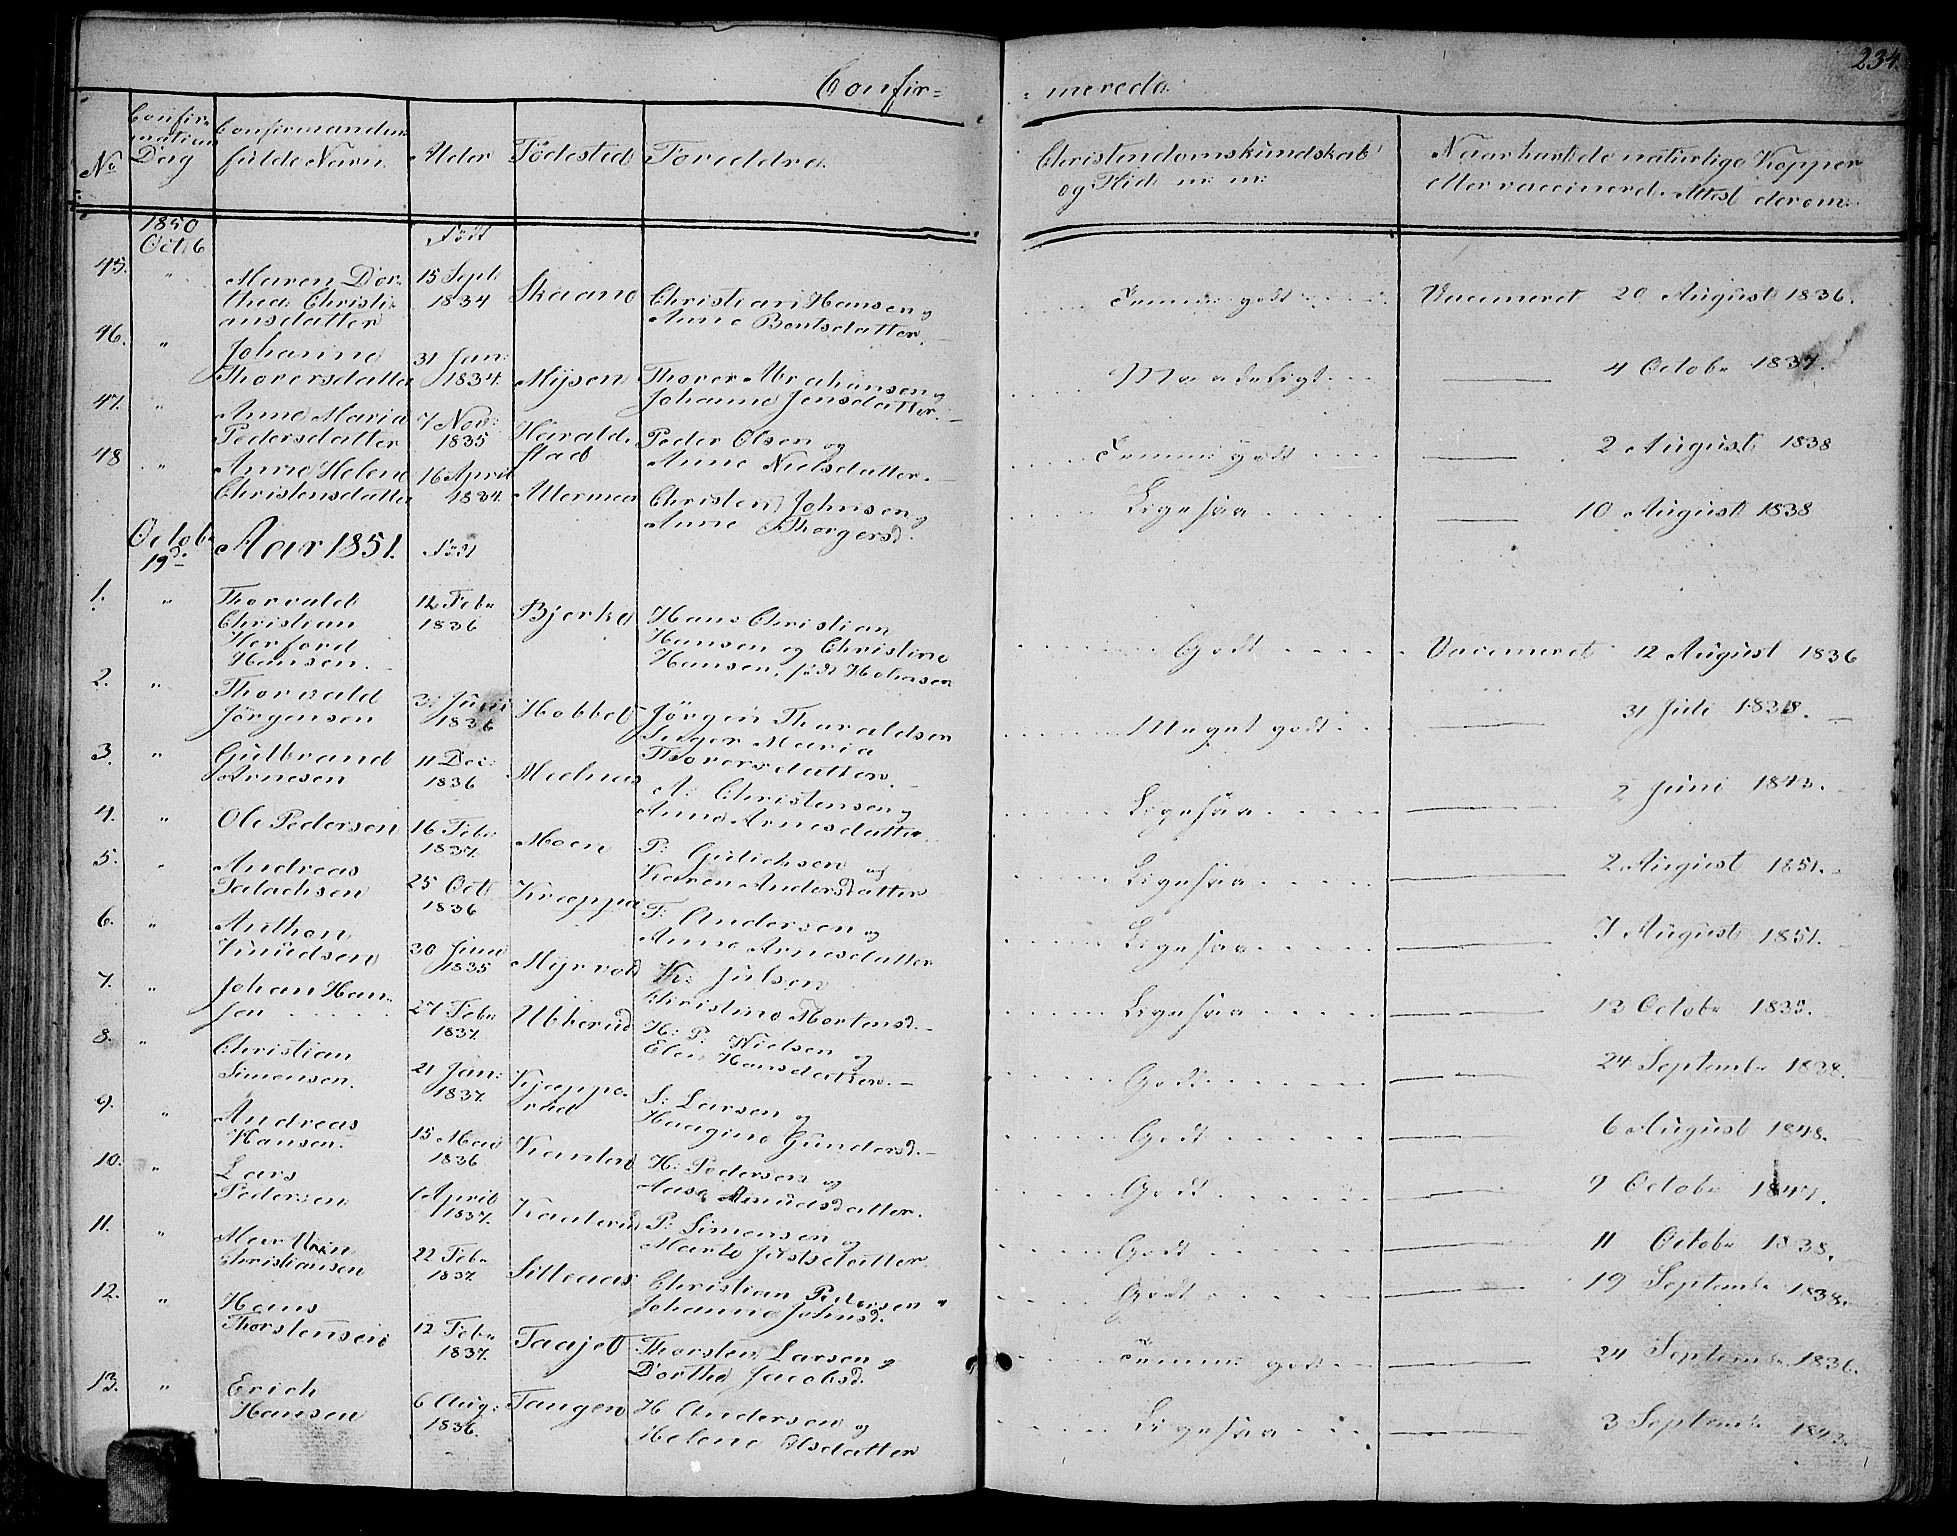 234.
Confir= =merede.
No
Confir=
mations
Dag
Confirmandens
fulde Navn.
Alder
Födested
Foreldre.
Christendomskundskab
og Flid m: m:
Naar havt de naturlige Kopper
eller vaccinered. Attest derom.
1850
Oct 6
Födt
45. " Maren Dor-
thea Christi-
ansdatter
15 Sept
1834
Skaane
Christian Hansen og
Anne Bentsdatter.
Temmel godt
Vaccineret 20 August 1836.
46. " Johanne
Thorersdatter
31 Jan:
1834.
Mysen
Thorer Abrahamsen og
Johanne Jensdatter.
Maadeligt
4 Octobr 1837.
47. " Anne Maria
Pedersdatter
7 Nov:
1835
Harald-
stad
Peder Olsen og
Anne Nielsdatter.
Temmel godt
2 August 1838
48 " Anne Helene
Christensdatter
16 April
1834.
Christen Johnsen og
Anne Thorgersd.
Ligesaa
10 August 1838
Octobr
19d.
Aar 1851.
Födt
1. " Thorvald
Christian
Herford
Hansen.
12 Febr
1836
Bjerke
Hans Christian
Hansen og Christine
Hansen, födt Holmsen
Godt
Vaccineret 12 August 1836
2. " Thorvald
Jörgensen
3: Juni
1836
Hobbel
Jörgen Thoraldsen
Inger Maria
Thorersdatter.
Meget godt
31 Juli 1838.
3. " Gulbrand
Arnesen
11 Dec:
1836
A: Christensen og
Anne Arnesdatter
Ligesaa
2 Juni 1843.
4. " Ole Pedersen
16 Feb:
1837.
Moen
P: Gulichsen og
Karen Andersdatter
Ligesaa
2 August 1851.
5. " Andreas
25 Oct
1836
Krappe
T: Andersen og
Anne Arnesdatter
Ligesaa
7 August 1851.
6. " Anthon
Knudsen
30 Juni
1835
Myrvold
K: Julsen
Christine Mortensd.
Ligesaa
13 Octobr 1835.
7. " Johan Han-
sen
27 Febr
1837.
Ubberud
H: P: Nielsen og
Elen Hansdatter.
Godt
24 Septembr 1838.
8. " Christian
Simensen.
21 Jan:
1837.
Kjeppe-
rud
S: Larsen og
Haagine Gundersd.
Godt
6 August 1848.
9. " Andreas
Hansen.
15 Mai
1836
H: Pedersen og
Aase Amundsdatter.
Godt
9 Octobr 1847.
10. " Lars
Pedersen
1 April
1837.
Kaaterud
P: Simensen og
Marte Jostsdatter
Godt
11 Octobr 1838.
11. "
Christiansen
22 Febr
1837.
Silleaas
Christian Pedersen og
Johanne Johnsd.
Godt
19 Septembr 1838.
12. " Hans
Thorstensen
12 Febr
1837.
Taajet
Thorsten Larsen og
Dorthe Jacobsd.
Temmel godt
24 Septembr 1836.
13. " Erich
Hansen
6 Aug:
1836.
Tangen
H Andersen og
Helene Olsdatter
Ligesaa
3 Septembr 1843.